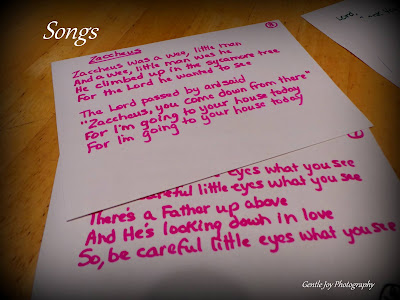 Songs
8
Zaccheus
Zaccheus was a wee, little man
And a wee, little man was he
He climbed up in the sycamore tree
For the Lord he wanted to see
The Lord passed by and said
"Zaccheus, you come down from there"
For I'm going to your house today
For I'm going to your house today
careful little eyes what you see
careful little eyes what you see
There's a Father up above
And He's looking down in love
So, be careful little eyes what you see
Gentle Joy Photography